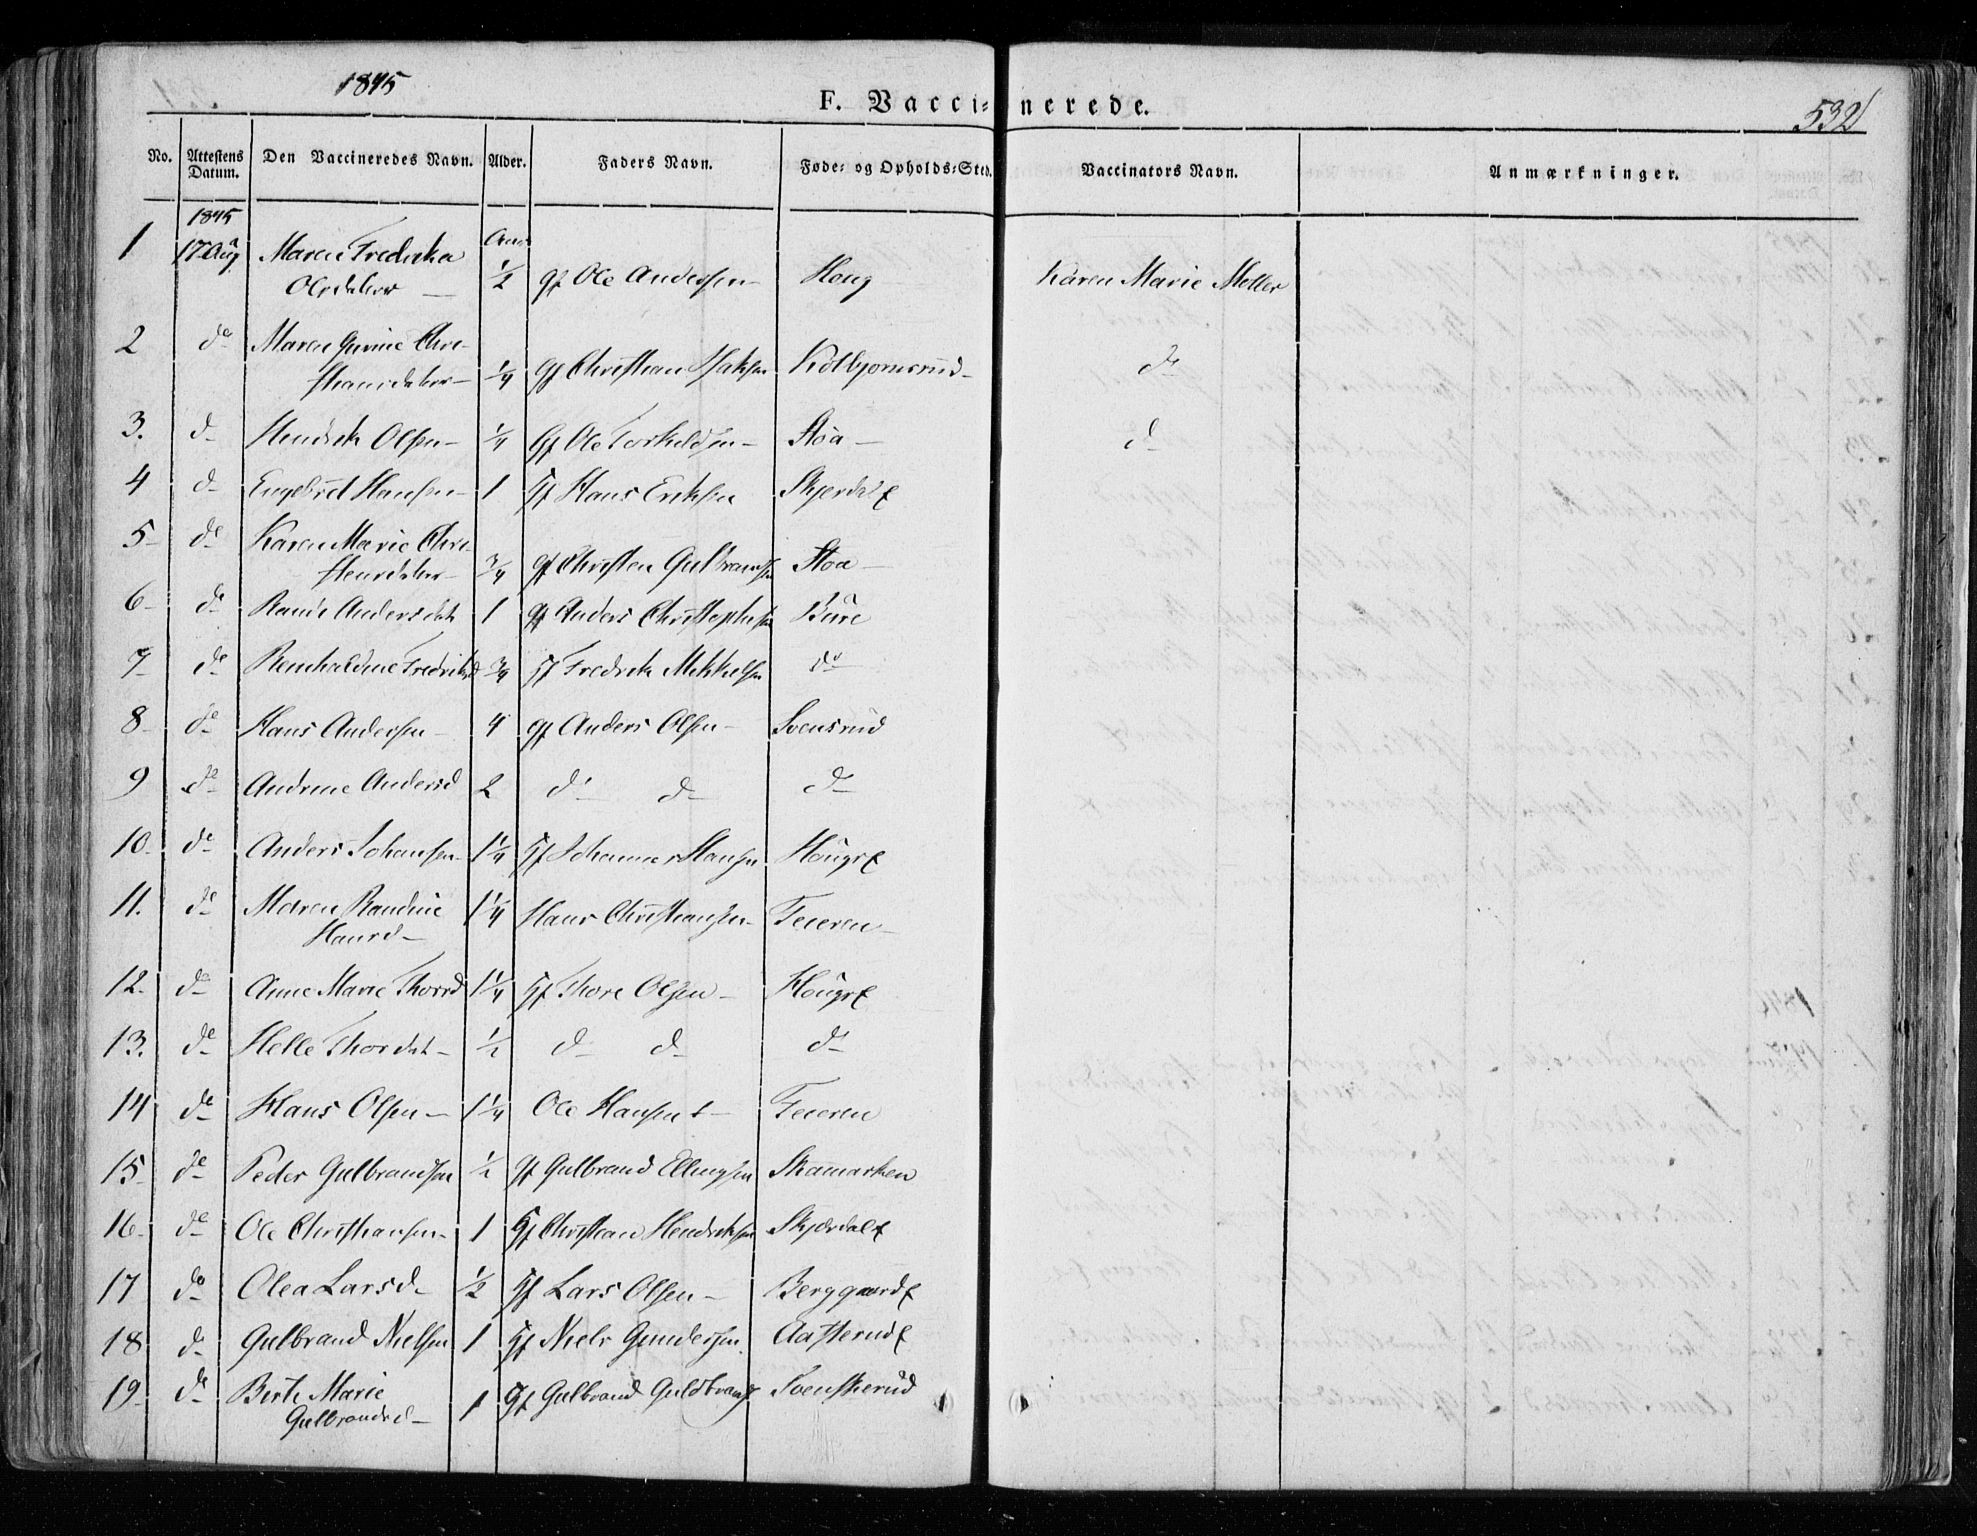 1845
F. Vaccinerede.
532
No. Attestens Datum. Den Vaccineredes Navn. Alder. Faders Navn. Føde- og Opholds-Sted. Vaccinators Navn. Anmærkninger.
1845
1 17 Aug Maren Fredrikea Aar
Olsdatter — ½ gf Ole Andersen — Houg Karen Marie Moller
2 do Maren Chri-
stiansdatter — ¼ gf Christian Kolbjornsrud — do
3. d Hendrik Olsen — ¼ gf Ole Torkildsen — Stoa — d
4 d Engebret Hansen — 1 gf Hans Eriksen Skjerdal
5 do Karen Marie Chri-
stensdatter — ¾ gf Christen Gulbrandsen Stoa —
6 do Randi Andersdatt 1 gf Anders Christophersen Bure
7 do Fredriksd ¾ gf Fredrik Mikkelsen do
8 do Hans Andersen — 4 gf Anders Olsen — Svensrud
9 do Andrine Andersd 2 d d d
10 do Anders Johansen 1¼ gf Johannes Hansen Hougs
11. do Maren Randine
Hansd — 1¼ Hans Christiansen — Feieren —
12. do Anne Marie Thorsd 1¼ gf Thore Olsen — Hougs
13. do Helle Thorsdat — ½ d d d
14 do Hans Olsen — 1¼ Ole Hansen — Feieren
15 do Peder Gulbrandsen ½ gf Gulbrand Ellingsen Skamarken
16 do Ole Christiansen 1 gf Christian Hendriksen Skjærdal
17 do Olea Larsd ½ gf Lars Olsen — Berggaard
18 d Gulbrand Nielsen 1 gf Niels Gundersen Aasterud
19 do Birte Marie
Gulbrandsd — 1 gf Gulbrand Guldbrands Svenskerud